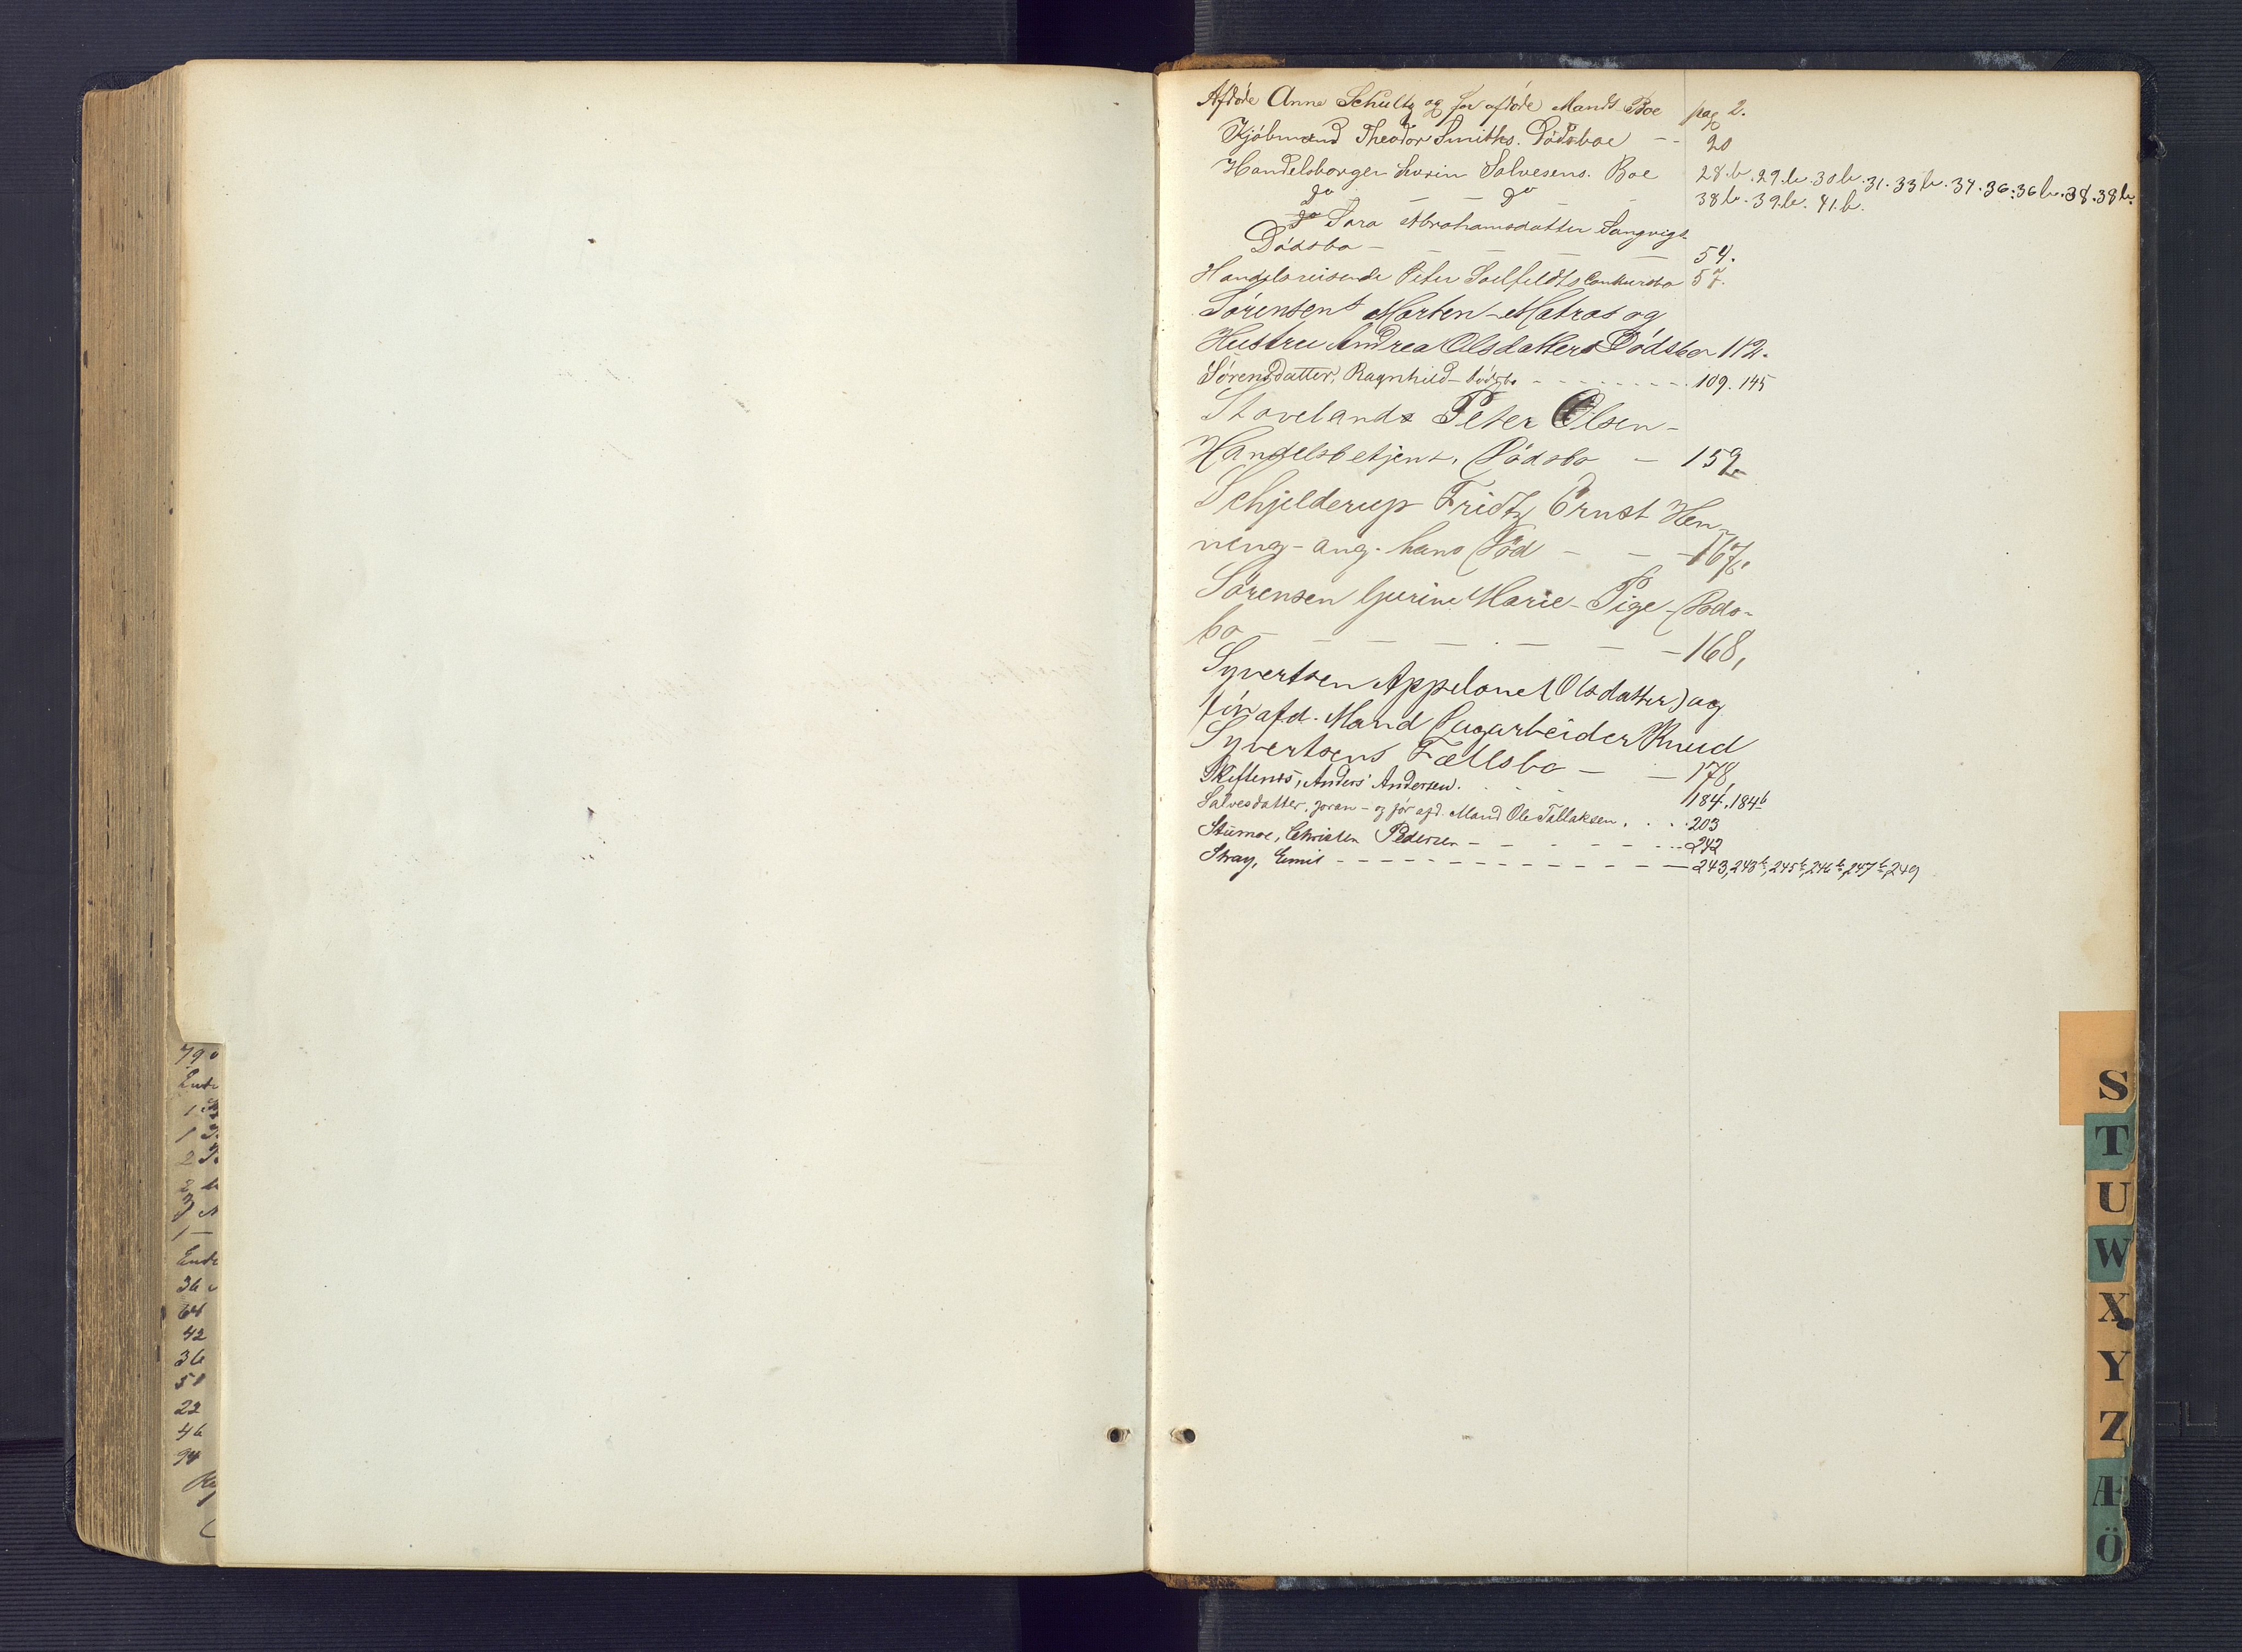 Afdøde Anna Schultz og før afdøde Mands Boe pag 2.
Kjøbmand Theodor Smiths. Dødsboe - - 20
Handelsborger Sevrin Salvesens. Boe 28.b. 29.b. 30.b. 31. 33b. 34. 36. 36b. 38. 38b.
do — — do — — 38b. 39.b. 41.b.
do Sara Abrahamsdatter Sangvigs
Dødsbo — — — — — 54.
Handelsreisende Peter Soelfeldts Conkursbo 57.
Sørensen's Morten - Matros og
Hustru Andrea Olsdatters Dødsbo 112.
Sørensdatter, Ragnhild - Dødsbo - - - - - - - - 109. 145
Stovelands Peter Olsen -
Handelsbetjent. Dødsbo — 159
Schjelderup Fridtz Ernst Hen-
ning - ang. hans Død — — — 167,
Sørensen Gurine Marie - Pige - Døds-
bo — — — — — — — 168,
Syvertsen Appelone (Olsdatter) og
før afd. Mand Lugarbeider Knud
Syvertsens Fællesbo — — 178,
Skiftenes, Anders Andersen. . . . 184, 184b
Salvesdatter, Joran - og før afd. Mand Ole Tallaksen . . . 203
Stumoe, Christen Pedersen - - - - - - - 242
Stray, Emil - - - - - - - - - - - - - 243, 243b, 245b, 246b, 247b, 249
790
1
1
2
2
3
1 —
36
64
42
36
51
22
46
94
S
T
U
W
X
Y
Z
Æ
Ö